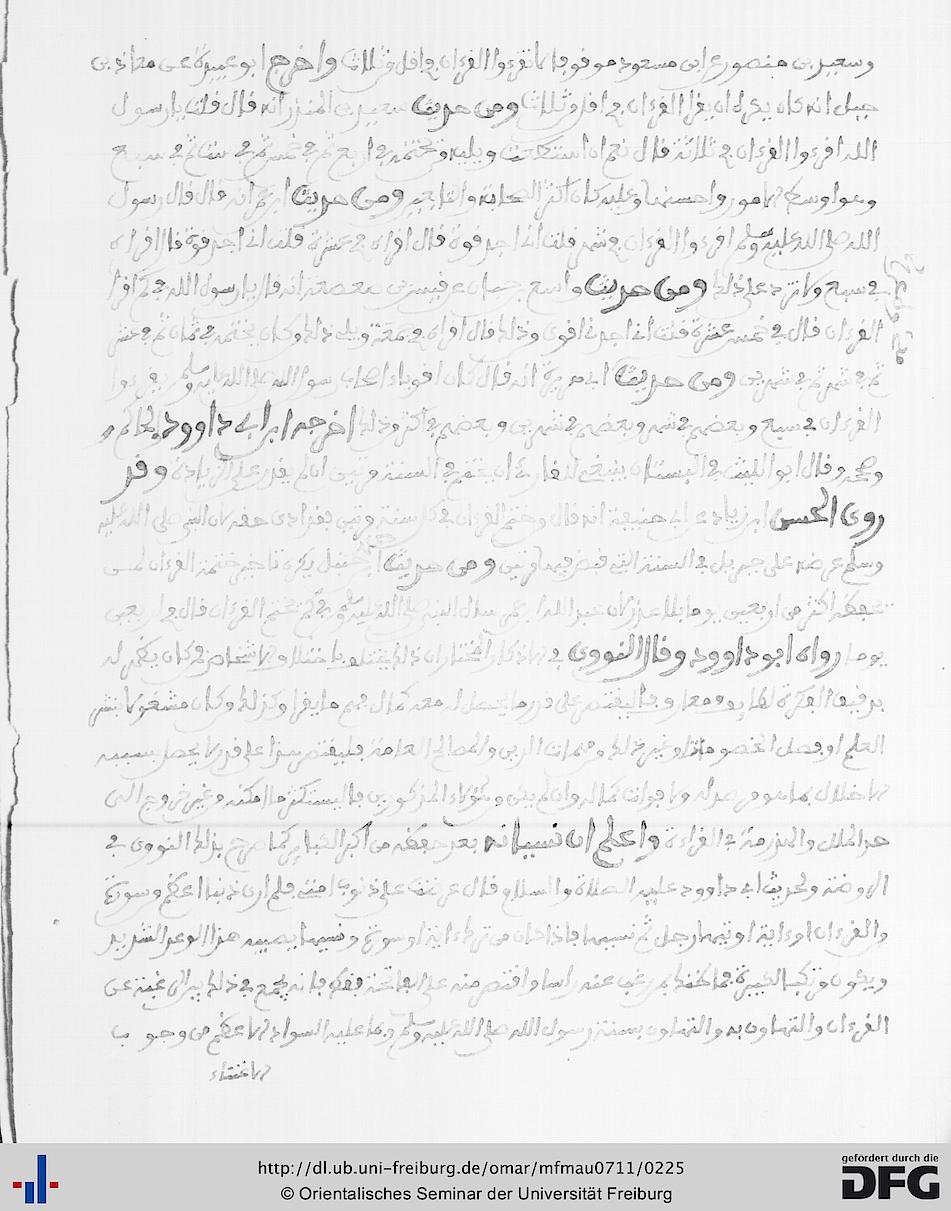 وسعيد بن منصور عن ابن مسعود موقوفا لا تقرءوا القرءان في اقل من ثلاث واخرج ابو عبيدة عن معاذ بن
جبل انه كان يكره ان يقرا القرءان في اقل من ثلاث ومن حديث سعيد بن المنذر انه قال قلت يا رسول
الله اقرءوا القرءان في ثلاثة قال نعم ان استطعت ويليه من ختمه في اربع ثم في خمس ثم في ست ثم في سبع
وهو اوسط الامور واحسنها وعليه كان اكثر الصحابة والتابعين ومن حديث ابن عمر انه قال قال رسول
الله صلى الله عليه وسلم اقرءوا القرءان في شهر قلت اني اجد قوة قال اقراه في عشرة قلت اني اجد قوة قال اقراه
في سبع ولا تزد على ذلك ومن حديث واسع بن حبان عن قيس بن صعصعة انه قال يا رسول الله في كم اقرا
القرءان قال في خمسة عشرة قلت اني اجدني اقوى من ذلك قال اقراه في جمعة ويلي ذلك من كان يختمه في ثمان ثم في عشر
ثم في شهر ثم في شهرين ومن حديث انه قال كان اقوياء اصحاب رسول الله صلى الله عليه وسلم يقرءوا
القرءان في سبع وبعضهم في شهر وبعضهم في شهرين وبعضهم في اكثر من ذلك اخرجه ابن ابي داوود الحاكم و
وقال ابو الليث في البستان ينبغي للقارئ ان يختم في السنة مرتين ان لم يقدر على الزيادة وقد
روى الحسن ابن زياد عن ابي حنيفة انه قال من ختم القرءان في كل سنة مرتين فقد ادى حقه لان النبي صلى الله عليه
وسلم عرضه على جبريل في السنة التي قبض فيها مرتين ومن حديث ابن حنبل يكره تاخير ختمة القرءان لمن
حفظه اكثر من اربعين يوما بلا عذر لان عبد الله ابن عمر سال النبي صلى الله عليه وسلم في كم تختم القرءان قال في اربعين
يوما رواه ابو داوود وقال النووي في الاذكار المختار ان ذلك يختلف باختلاف الاشخاص فمن كان يظهر له
بدقيق الفكرة لطايف ومعارف فاليقتصر على قدر ما يحصل له معه كمال فهم ما يقرا وكذلك من كان مشغولا بنشر
العلم او فصل الخصومات او غير ذلك من مهمات الدين والمصالح العامة فليقتصر على قدر لا يحصل بسببه
الاخلال بما هو مرصد له ولا فوات كماله وان لم يكن من هؤلاء المذكورين فاليستكثر ما امكنه من غير خروج الى
حد الملل والهذرمة في القراءة واعلم ان نسيانه بعد حفظه من اكبر الكباير كما صرح بذلك النووي في
الروضة ولحديث ابي داوود عليه الصلاة والسلام قال عرضت علي ذنوب امتي فلم ار ذنبا اعظم من سورة
من القرءان او ءاية اوتيها رجل ثم نسيها فاذا كان من ترك ءاية او سورة ونسيها يصيبه هذا الوعد الشديد
ويكون مرتكب الكبيرة فما ظنك بمن رغب عنه راسا واقتصر منه على الفاتحة فقط فانه يجمع في ذلك بين الرغبة عن
القرءان والتهاون به والتهاون بسنة رسول الله صلى الله عليه وسلم وما عليه السواد الاعظم من وجوب
الاعتناء
http://dl.ub.uni-freiburg.de/omar/mfmau0711/0225
© Orientalisches Seminar der Universität Freiburg
gefördert durch die
DFG